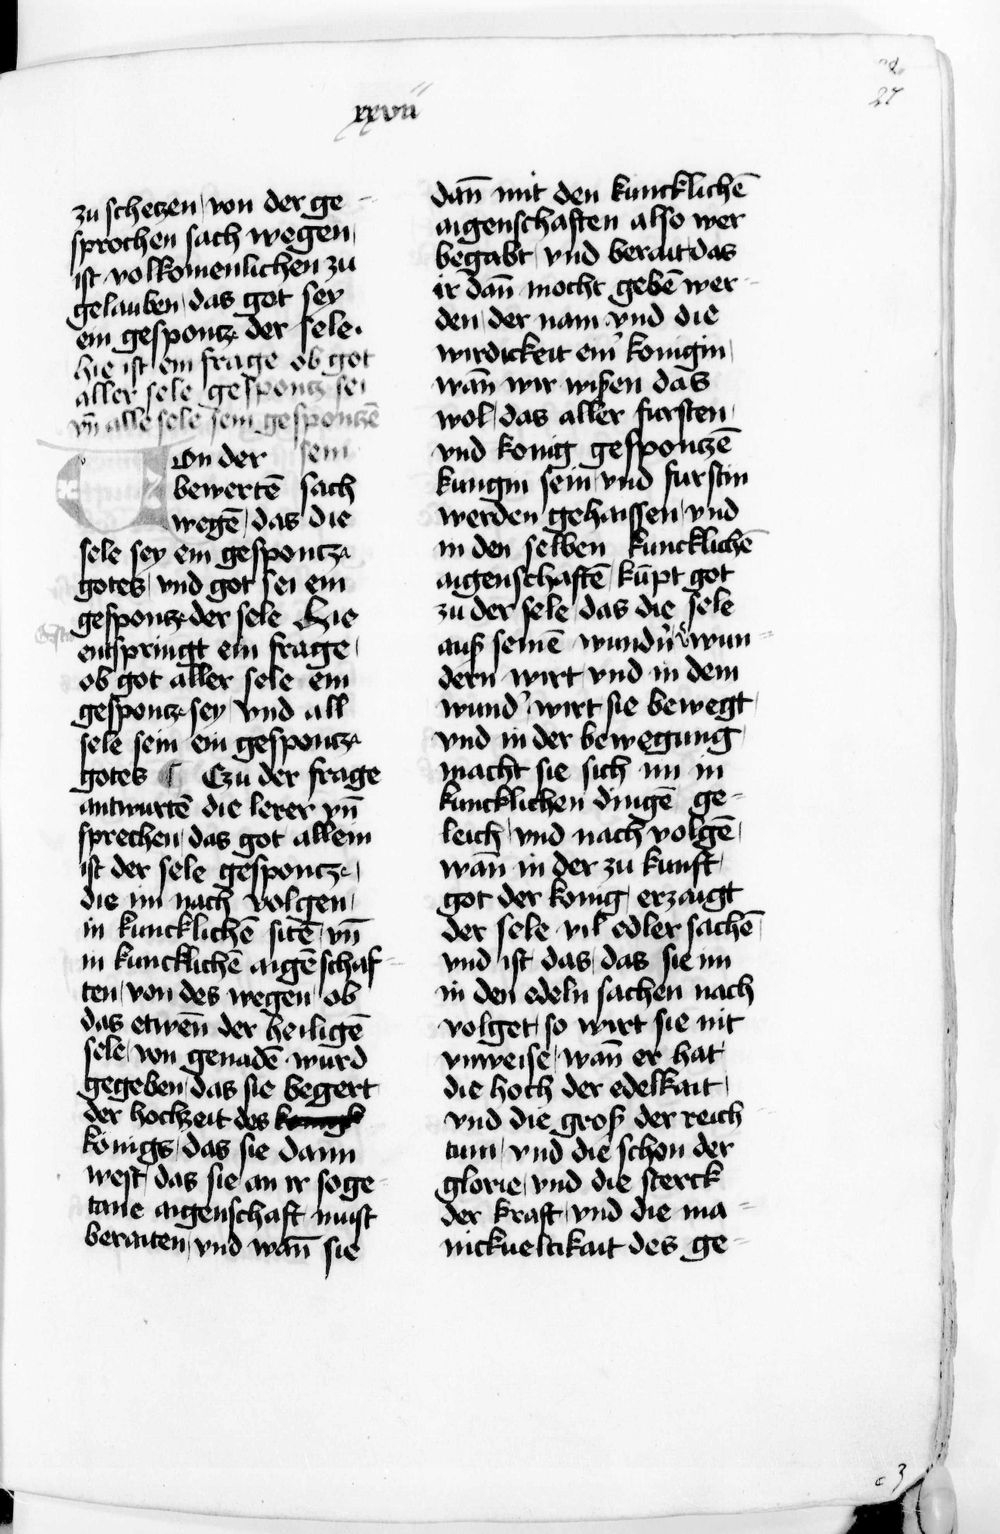 xxvii
27
zu schetzen / von der ge-
sprochen sach wegen /
ist volkomenlichen zu
gelauben / das got sey
ein gespontz der sele.
hie ist ein frage ob got
aller sele gespontz sei
vn̄ alle sele sein gespontzē
sein
Von der
bewertē sach
wegē / das die
sele sey ein gespontz
gotes / vnd got sei ein
gespontz der sele Hie
entspringtt ein frage /
ob got aller sele ein
gespontz sey / vnd all
sele sein ein gespontz
gotes ¶ Czu der frage
antwurtē die lerer vn̄
sprechen / das got allein
ist der sele gespontz /
die im nach volgen /
in kuncklichē sitē / vn̄
in kuncklichē aigēschaf-
ten / von des wegen / ob
das etwen̄ der heiligē
sele / von genadē wurd
gegeben / das sie begert
der hochzeit des
königs / das sie dann
west / das sie an ir soge-
tane aigenschaft must
beraiten / vnd wan̄ sie
dan̄ mit den kuncklichē
aigenschaften also wer
begabt / vnd berait / das
ir dan̄ mocht gebē wer-
den / der nam vnd die
wirdickeit ein' konigin /
wan̄ wir wißen das
wol / das aller fursten /
vnd konig gespontzē
kungin sein / vnd furstin
werden gehaissen / vnd
in den selben kuncklichē
aigenschaftē / kūpt got
zu der sele / das die sele
auß seinē wundn' wun-
dern wirt / vnd in dem
wund' wirt sie bewegt /
vnd in der bewegung
macht sie sich im in
kuncklichen dingē ge-
leich / vnd nach volgē /
wan̄ in der zu kunft /
got der konig / erzaigt
der sele vil edler sachē /
vnd ist das / das sie im
in den edeln sachen nach
volget / so wirt sie nit
vnweise / wan̄ er hat
die hoch der edelkait /
vnd die groß der reich-
tum / vnd die schon der
glorie / vnd die sterck
der kraft / vnd die ma-
nickueltikait des ge-
c 3